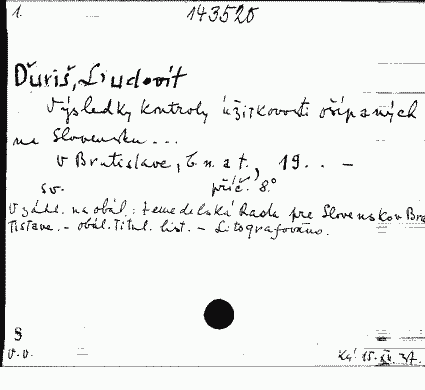 1.
143520
Ďuriš, Ľudovít
Výsledky kontroly úžitkovosti ošípaných
na Slovensku...
V Bratislave, b. n. a t., 19 . . –
sv. příč. 8°
V záhl. na obál.: Zemedelská Rada pre Slovensko v Bra
tislave. – obál. titul. list. – Litografováno.
S
v. v.
Ká 15. XII. 37.